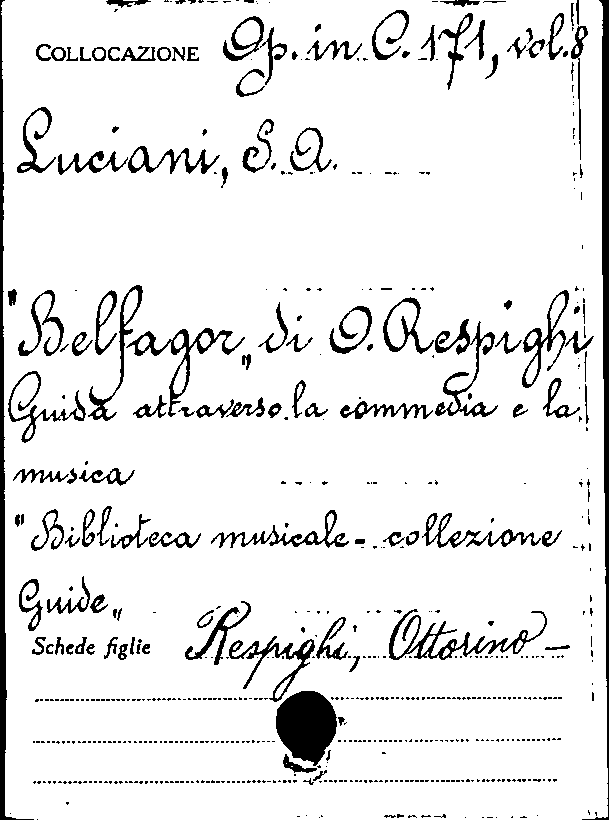 COLLOCAZIONE Op. in C. 171, vol. 8
Luciani, S. A.
"Belfagor„ di O. Respighi
Guida attraverso la commedia e la
musica
"Biblioteca musicale - collezione
Guide„
Schede figlie Respighi, Ottorino -